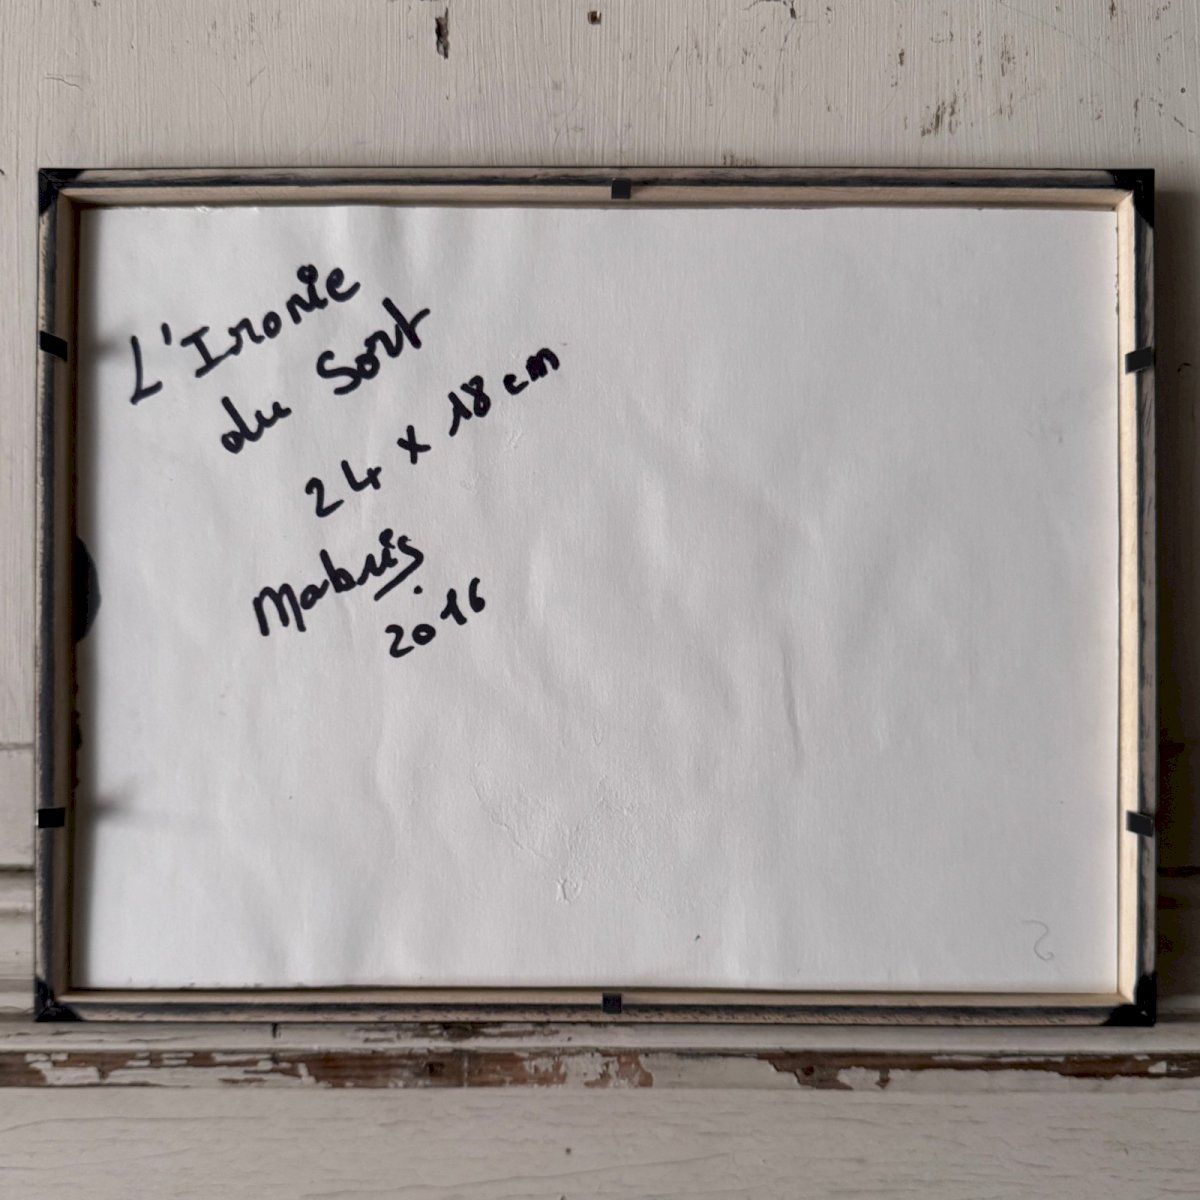 L'Ironie
du Sort
24 x 18 cm
Mabris
2016